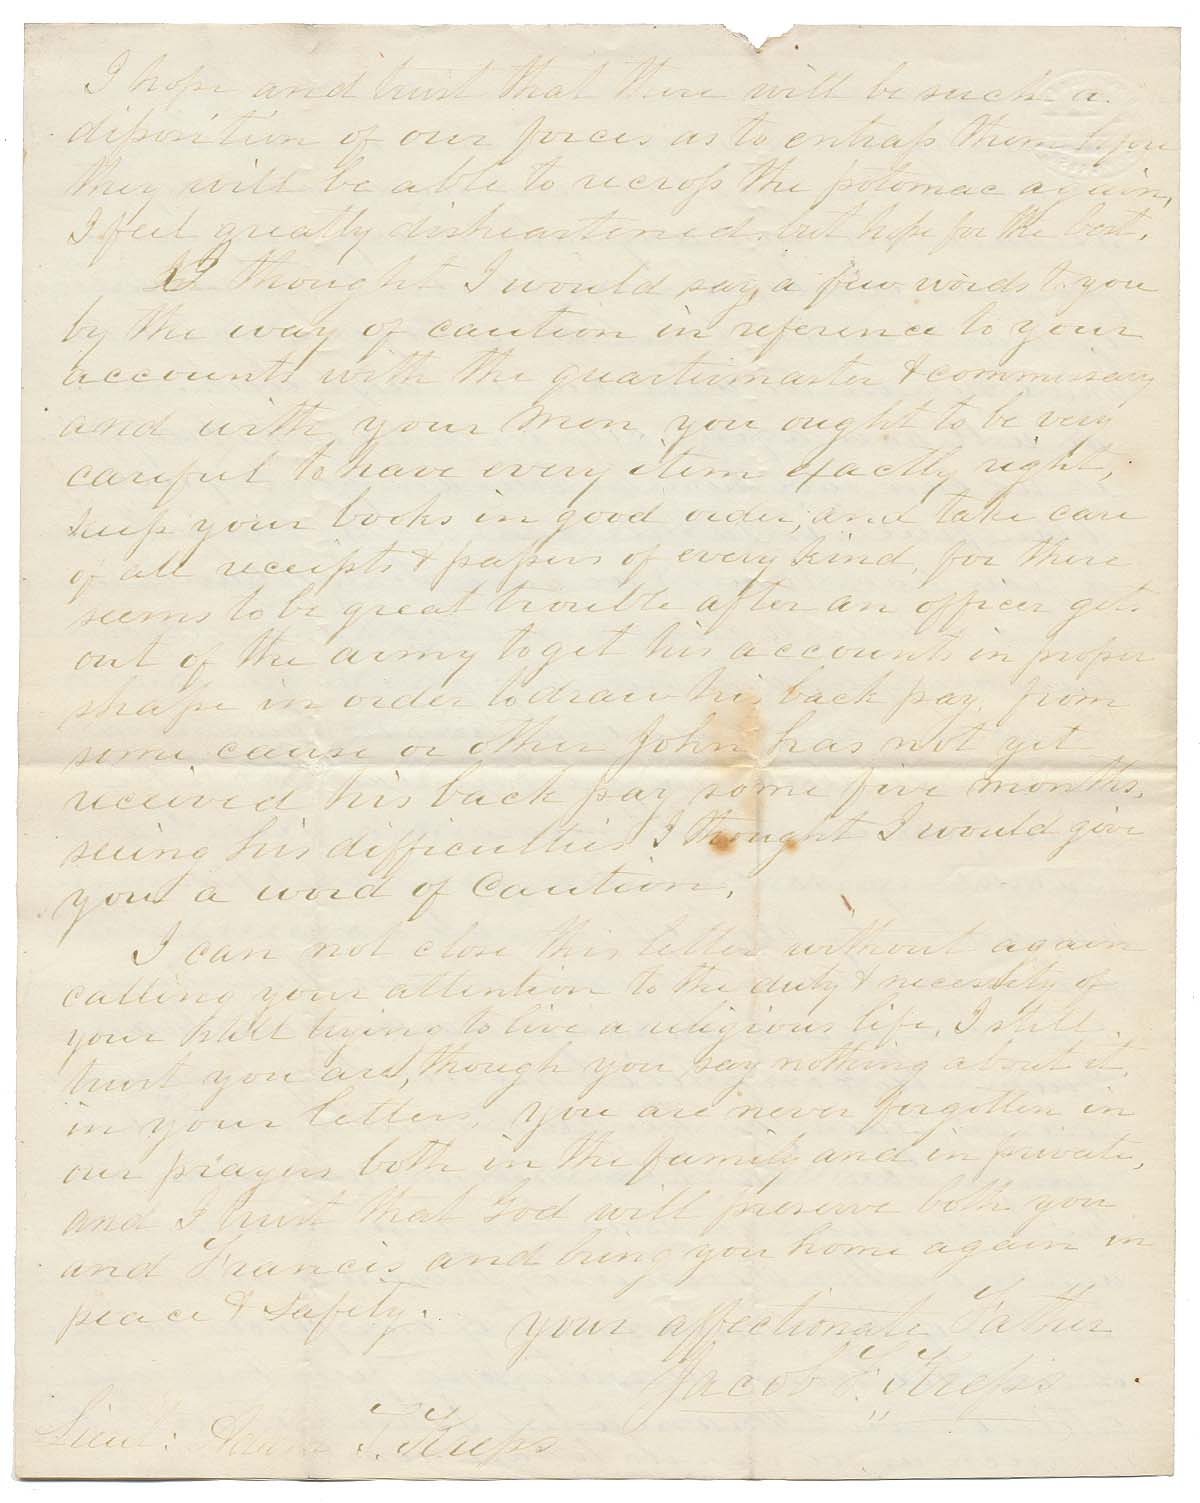 I hope and trust that there will be such a
disposition of our forces as to entrap them before
they will be able to recross the potomac again,
I feel greatly disheartened, but hope for the best.
I thought I would say a few words to you
by the way of caution in reference to your
accounts with the quartermaster & commissary
and with your men, you ought to be very
careful to have every item exactly right,
keep your books in good order, and take care
of all receipts & papers of every kind, for there
seems to be great trouble after an officer gets
out of the army to get his accounts in proper
shape in order to draw his back pay, from
some cause or other John has not yet
received his back pay some five months,
seeing his difficulties I thought I would give
you a word of caution.
I can not close this letter without again
calling your attention to the duty & necessity of
your still trying to live a religious life, I still
trust you are, though you say nothing about it,
in your letters, you are never forgotten in
our prayers both in the family and in private,
and I trust that God will preserve both you
and Francis and bring you home again in
peace & safety.
your affectionate Father
Jacob F. Kreps
Lieut: Adam T. Kreps